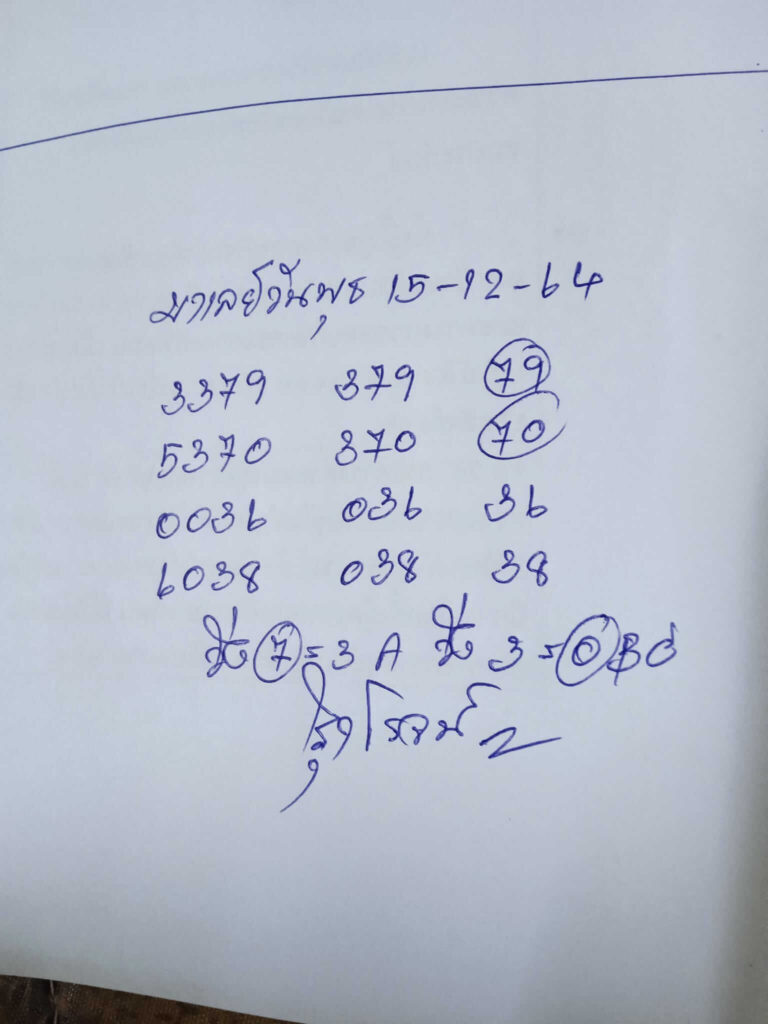 มาเลย์วันพุธ 15-12-64
3379 379 79
5370 370 70
0036 036 36
6038 038 38
วิ่ง 7=3 A วิ่ง 3=0 B